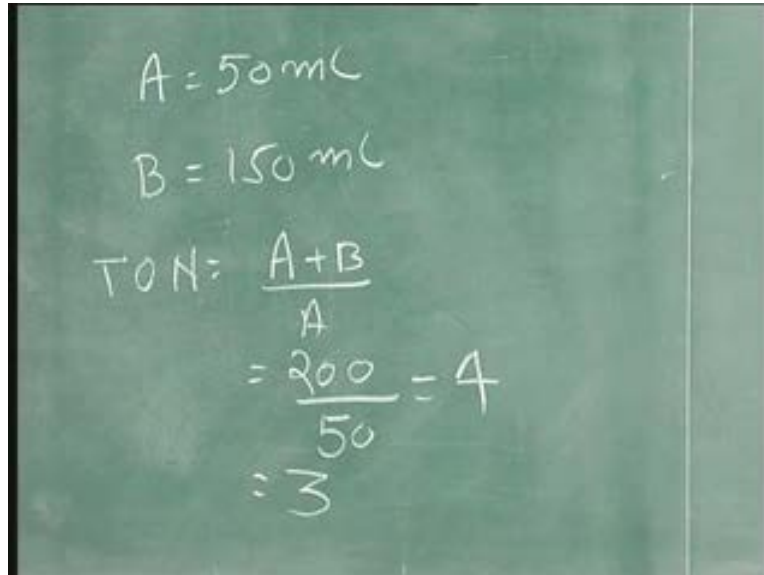 A = 50 ml
B = 150 ml
TON = A+B / A
= 200 / 50 = 4
= 3